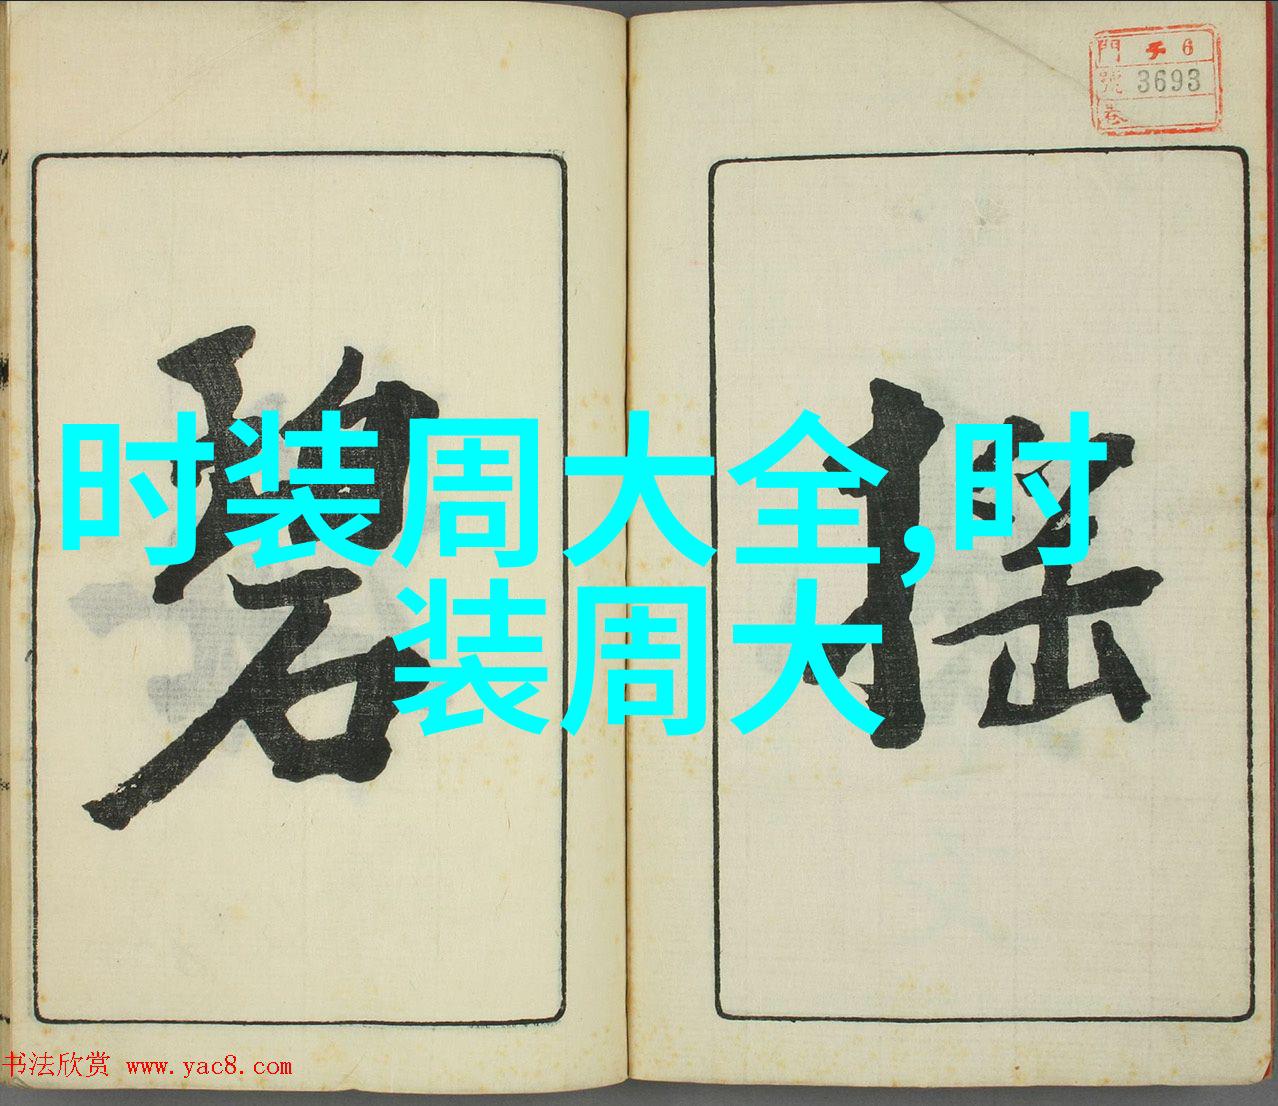 門 チ 6
號 3693
卷
搖
碧
时装周大全,时
装周大
书法欣赏 www.yac8.com